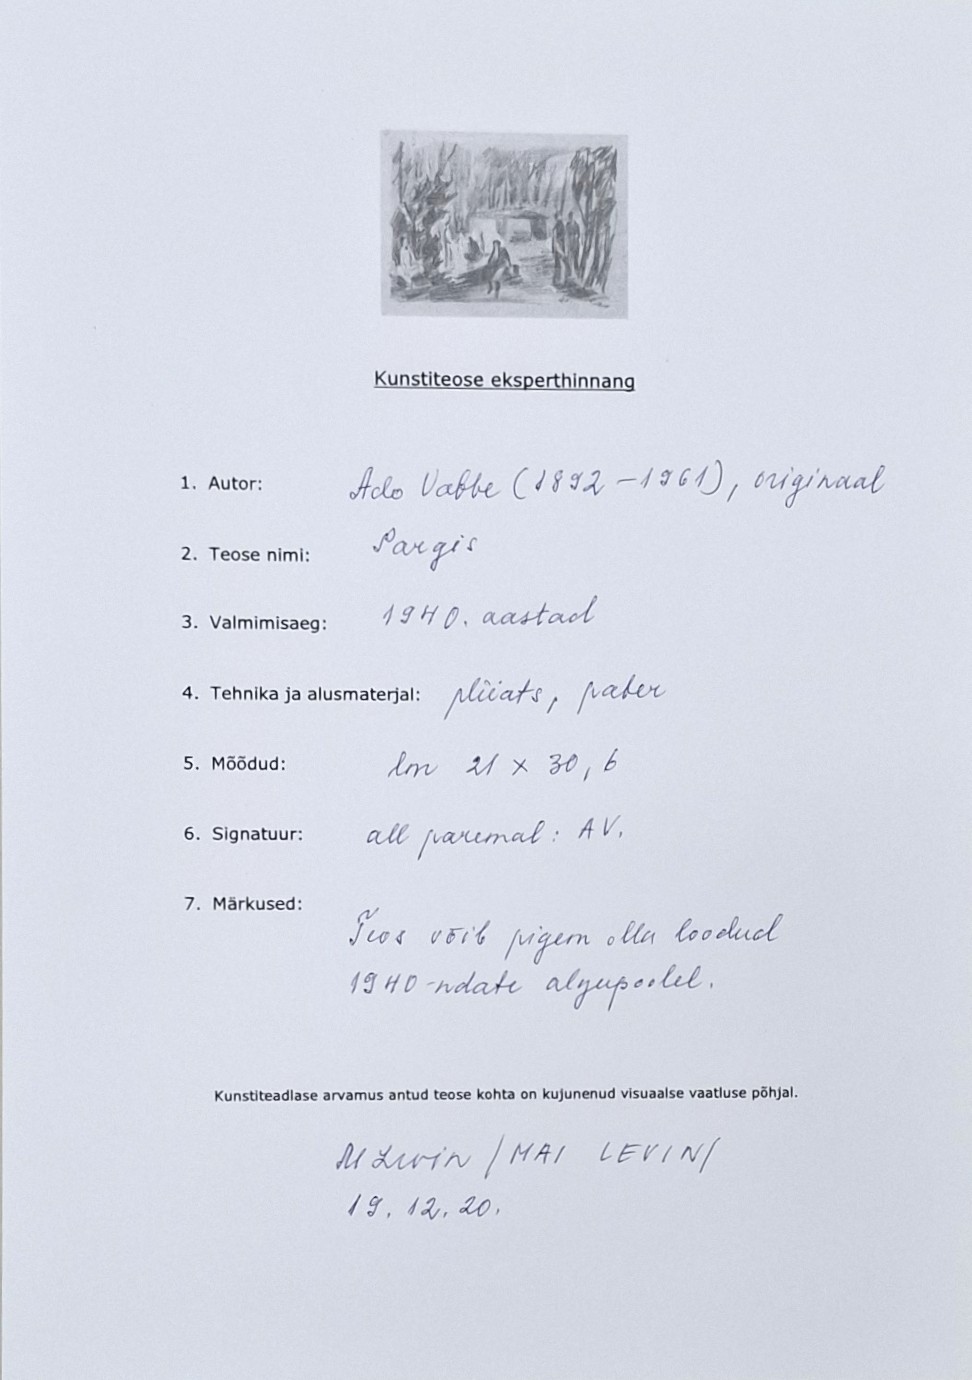 Kunstiteose eksperthinnang
1. Autor: Ado Vabbe (1892 – 1961), originaal
2. Teose nimi: Pargis
3. Valmimisaeg: 1940. aastad
4. Tehnika ja alusmaterjal: pliiats, paber
5. Mõõdud: lm 21 x 30,6
6. Signatuur: all paremal: AV.
7. Märkused:
Teos võib pigem olla loodud
1940-ndate algupoolel.
Kunstiteadlase arvamus antud teose kohta on kujunenud visuaalse vaatluse põhjal.
M Levin /MAI LEVIN/
19. 12. 20.